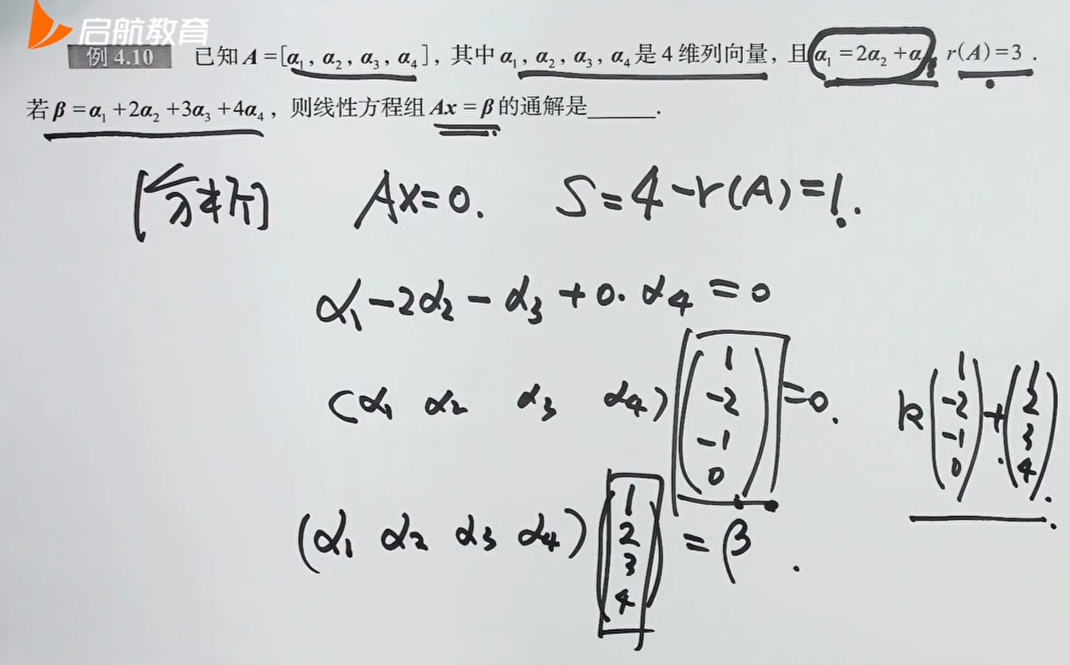 启航教育
例 4.10 已知 A=[α₁, α₂, α₃, α₄], 其中 α₁, α₂, α₃, α₄ 是 4 维列向量, 且 α₁=2α₂+α₃, r(A)=3.
若 β=α₁+2α₂+3α₃+4α₄, 则线性方程组 Ax=β 的通解是______.
[分析] Ax=0. S=4-r(A)=1.
α₁-2α₂-α₃+0·α₄=0
(α₁ α₂ α₃ α₄)(1 -2 -1 0)=0.
k(1 -2 -1 0)+(1 2 3 4).
(α₁ α₂ α₃ α₄)(1 2 3 4)=β.